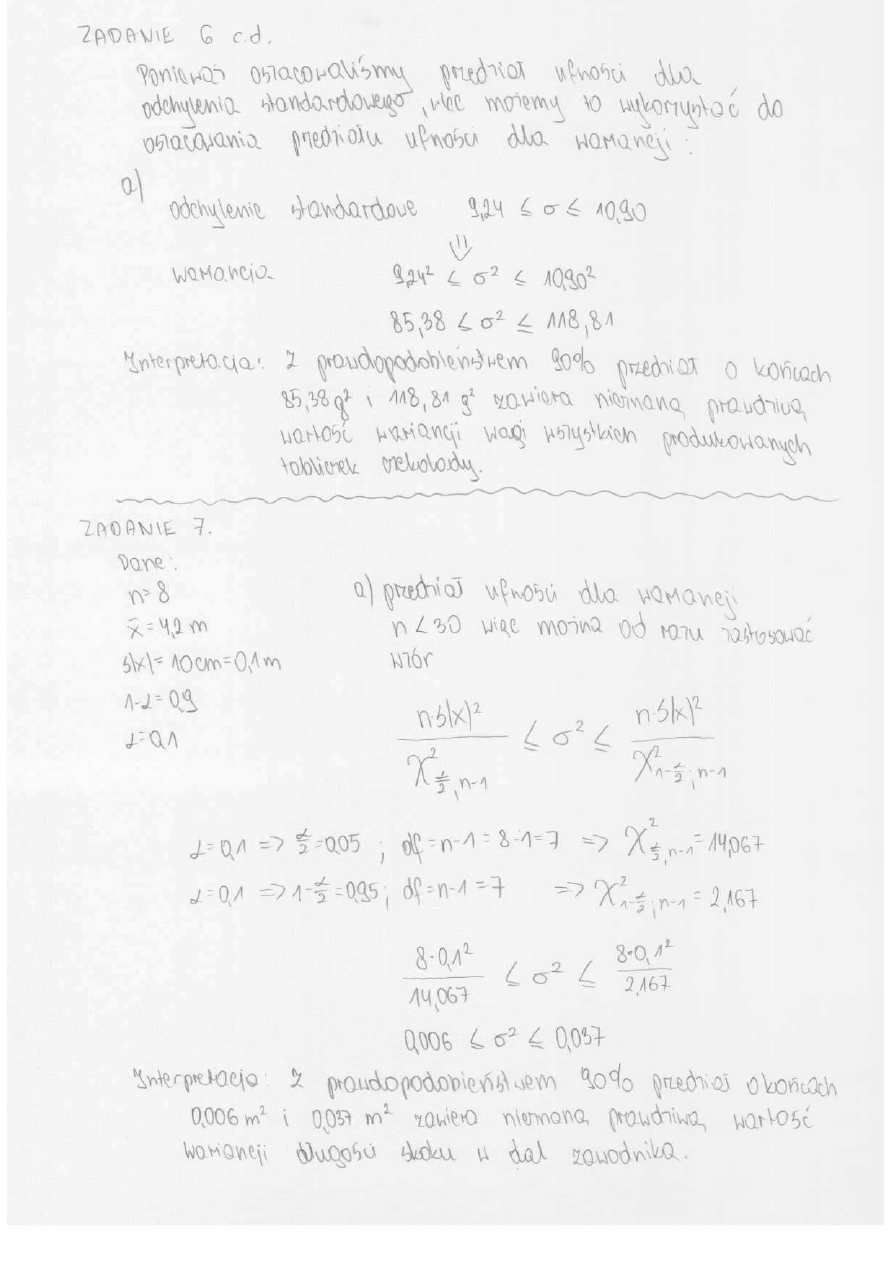 ZADANIE 6 c.d.
Ponieważ oszacowaliśmy przedział ufności dla
odchylenia standardowego, więc możemy to wykorzystać do
oszacowania przedziału ufności dla wariancji:
a)
odchylenie standardowe 9,24 ≤ σ ≤ 10,90
⇓
wariancja 9,24² ≤ σ² ≤ 10,90²
85,38 ≤ σ² ≤ 118,81
Interpretacja: Z prawdopodobieństwem 90% przedział o końcach
85,38 g² i 118,81 g² zawiera nieznaną prawdziwą
wartość wariancji wagi wszystkich produkowanych
tabliczek czekolady.
ZADANIE 7.
Dane:
n=8
x̄=4,2 m
s(x)=10cm=0,1m
1-α=0,9
α=0,1
a) przedział ufności dla wariancji
n<30 więc można od razu zastosować
wzór
n·s(x)² / χ²_{α/2; n-1} ≤ σ² ≤ n·s(x)² / χ²_{1-α/2; n-1}
α=0,1 => α/2=0,05 ; df=n-1=8-1=7 => χ²_{α/2; n-1}=14,067
α=0,1 => 1-α/2=0,95; df=n-1=7 => χ²_{1-α/2; n-1}=2,167
8·0,1² / 14,067 ≤ σ² ≤ 8·0,1² / 2,167
0,006 ≤ σ² ≤ 0,037
Interpretacja: Z prawdopodobieństwem 90% przedział o końcach
0,006 m² i 0,037 m² zawiera nieznaną prawdziwą wartość
wariancji długości skoku w dal zawodnika.